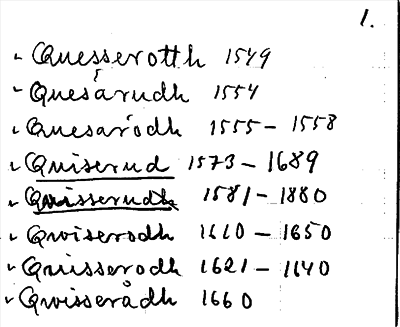 1.
Quesserotth 1549
Quesårudh 1554
Quesarödh 1555 – 1558
Quiserud 1573 – 1689
Quisserudh 1581 – 1880
Qwiserodh 1610 – 1650
Quisserodh 1621 – 1640
Qwisserådh 1660